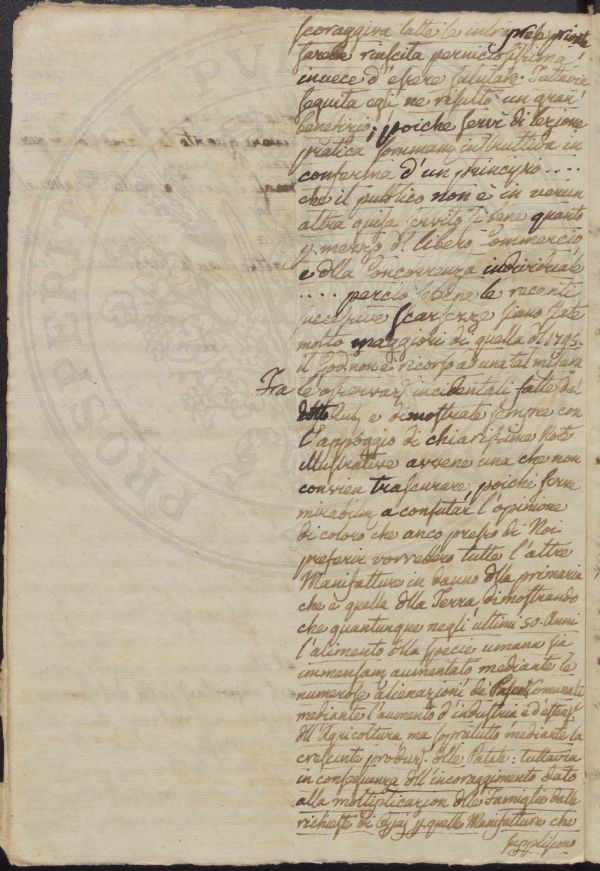 scoraggiva tutte le intraprese private
sarebbe riuscita perniciosissima
invece d'essere salutare. Tuttavia
seguita egli ne risultò un gran
benefizio; poiche servì di lezione
pratica sommam. instruttiva in
conferma d'un principio ....
che il publico non è in verun
altra guisa servito sì bene quanto
p. mezzo d. libero Commercio
e dlla Concorrenza individuale
.... perciò sebene le recenti
successive scarsezze siano state
molto maggiori di quella dl 1795.
il Gov. non è ricorso ad una tal misura
Fra le osservaz. incidentali fatte dal
dotto e dimostrate sempre con
l'appoggio di chiarissime Note
illustrative avvene una che non
convien trascurare, poiche serve
mirabilm. a confutar l'opinione
di coloro che anco presso di Noi
preferir vorrebbero tutte l'altre
Manifatture in danno dlla primaria
che è quella dlla Terra, dimostrando
che quantunque negli ultimi 50. Anni
l'alimento dlla specie umana sia
immensam. aumentato mediante le
numerose alienazioni de' Pascoli Comunali
mediante l'aumento d'industria e d'estens.
dll'Agricoltura ma sopratutto mediante la
crescente produz. dlle Patate: tuttavia
in conseguenza dll'incoraggimento dato
alla moltiplicazion dlle Famiglie dalle
richieste di p. quelle Manifatture che
suppliscono
PROSPERITATI PUB